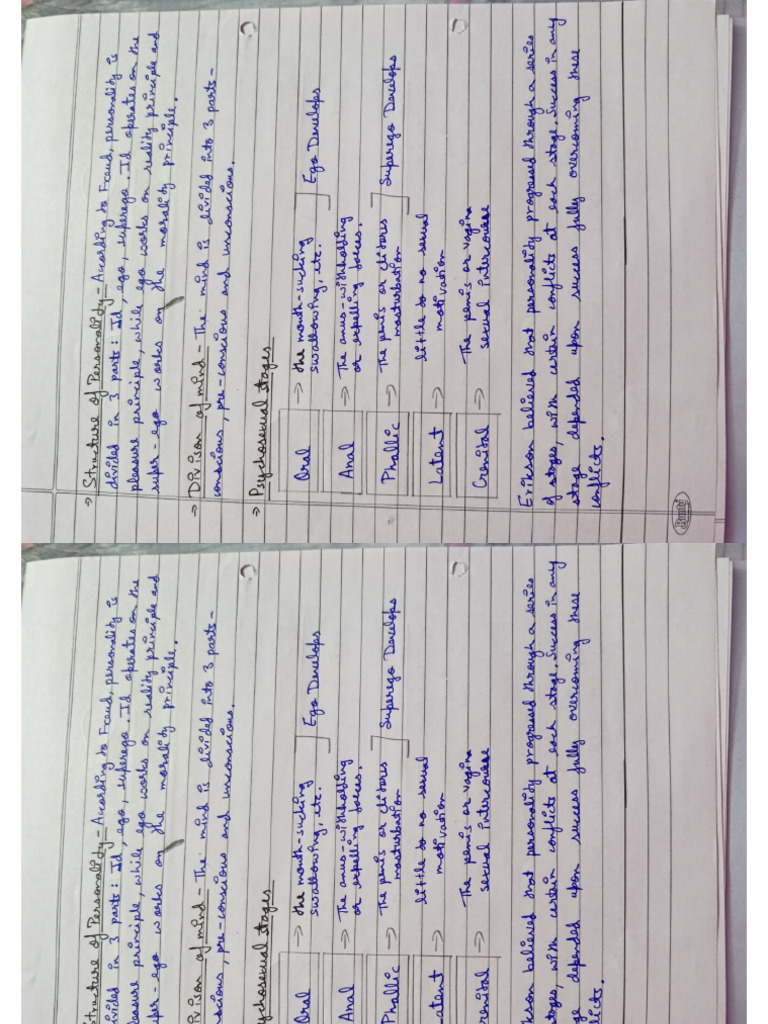 → Structure of Personality - According to Fraud, personality is
divided in 3 parts: Id, ego, superego. Id operates on the
pleasure principle, while ego works on reality principle and
super-ego works on the morality principle.
→ Divison of mind - The mind is divided into 3 parts -
conscious, pre-conscious and unconscious.
→ Psychosexual stages
Oral → the mouth-sucking
swallowing, etc.
Ego Develops
Anal → The anus-withholding
or expelling faeces.
Phallic → The penis or clitores
masturbation
Superego Develops
Latent → little to no sexual
motivation
Genital → The penis or vagina
sexual intercourse
Erikson believed that personality progressed through a series
of stages, with certain conflicts at each stage. Success in any
stage depended upon success fully overcoming these
conflicts.
Structure of Personality - According to Fraud, personality is
divided in 3 parts: Id, ego, superego. Id operates on the
pleasure principle, while ego works on reality principle and
super-ego works on the morality principle.
ivison of mind - The mind is divided into 3 parts -
nscious, pre-conscious and unconscious.
ychosexual stages
Oral → the mouth-sucking
swallowing, etc.
Ego Develops
Anal → The anus-withholding
or expelling faeces.
Phallic → The penis or clitores
masturbation
Superego Develops
atent → little to no sexual
motivation
enital → The penis or vagina
sexual intercourse
kson believed that personality progressed through a series
tages, with certain conflicts at each stage. Success in any
ge depended upon success fully overcoming these
licts.